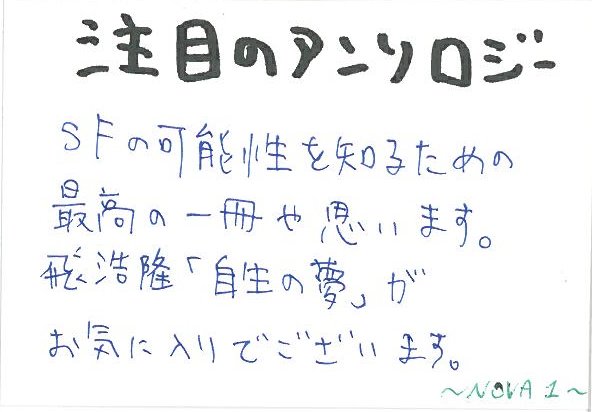 注目のアンソロジー
SFの可能性を知るための
最高の一冊や思います。
飛浩隆「自生の夢」が
お気に入りでございます。
~NOVA 1~